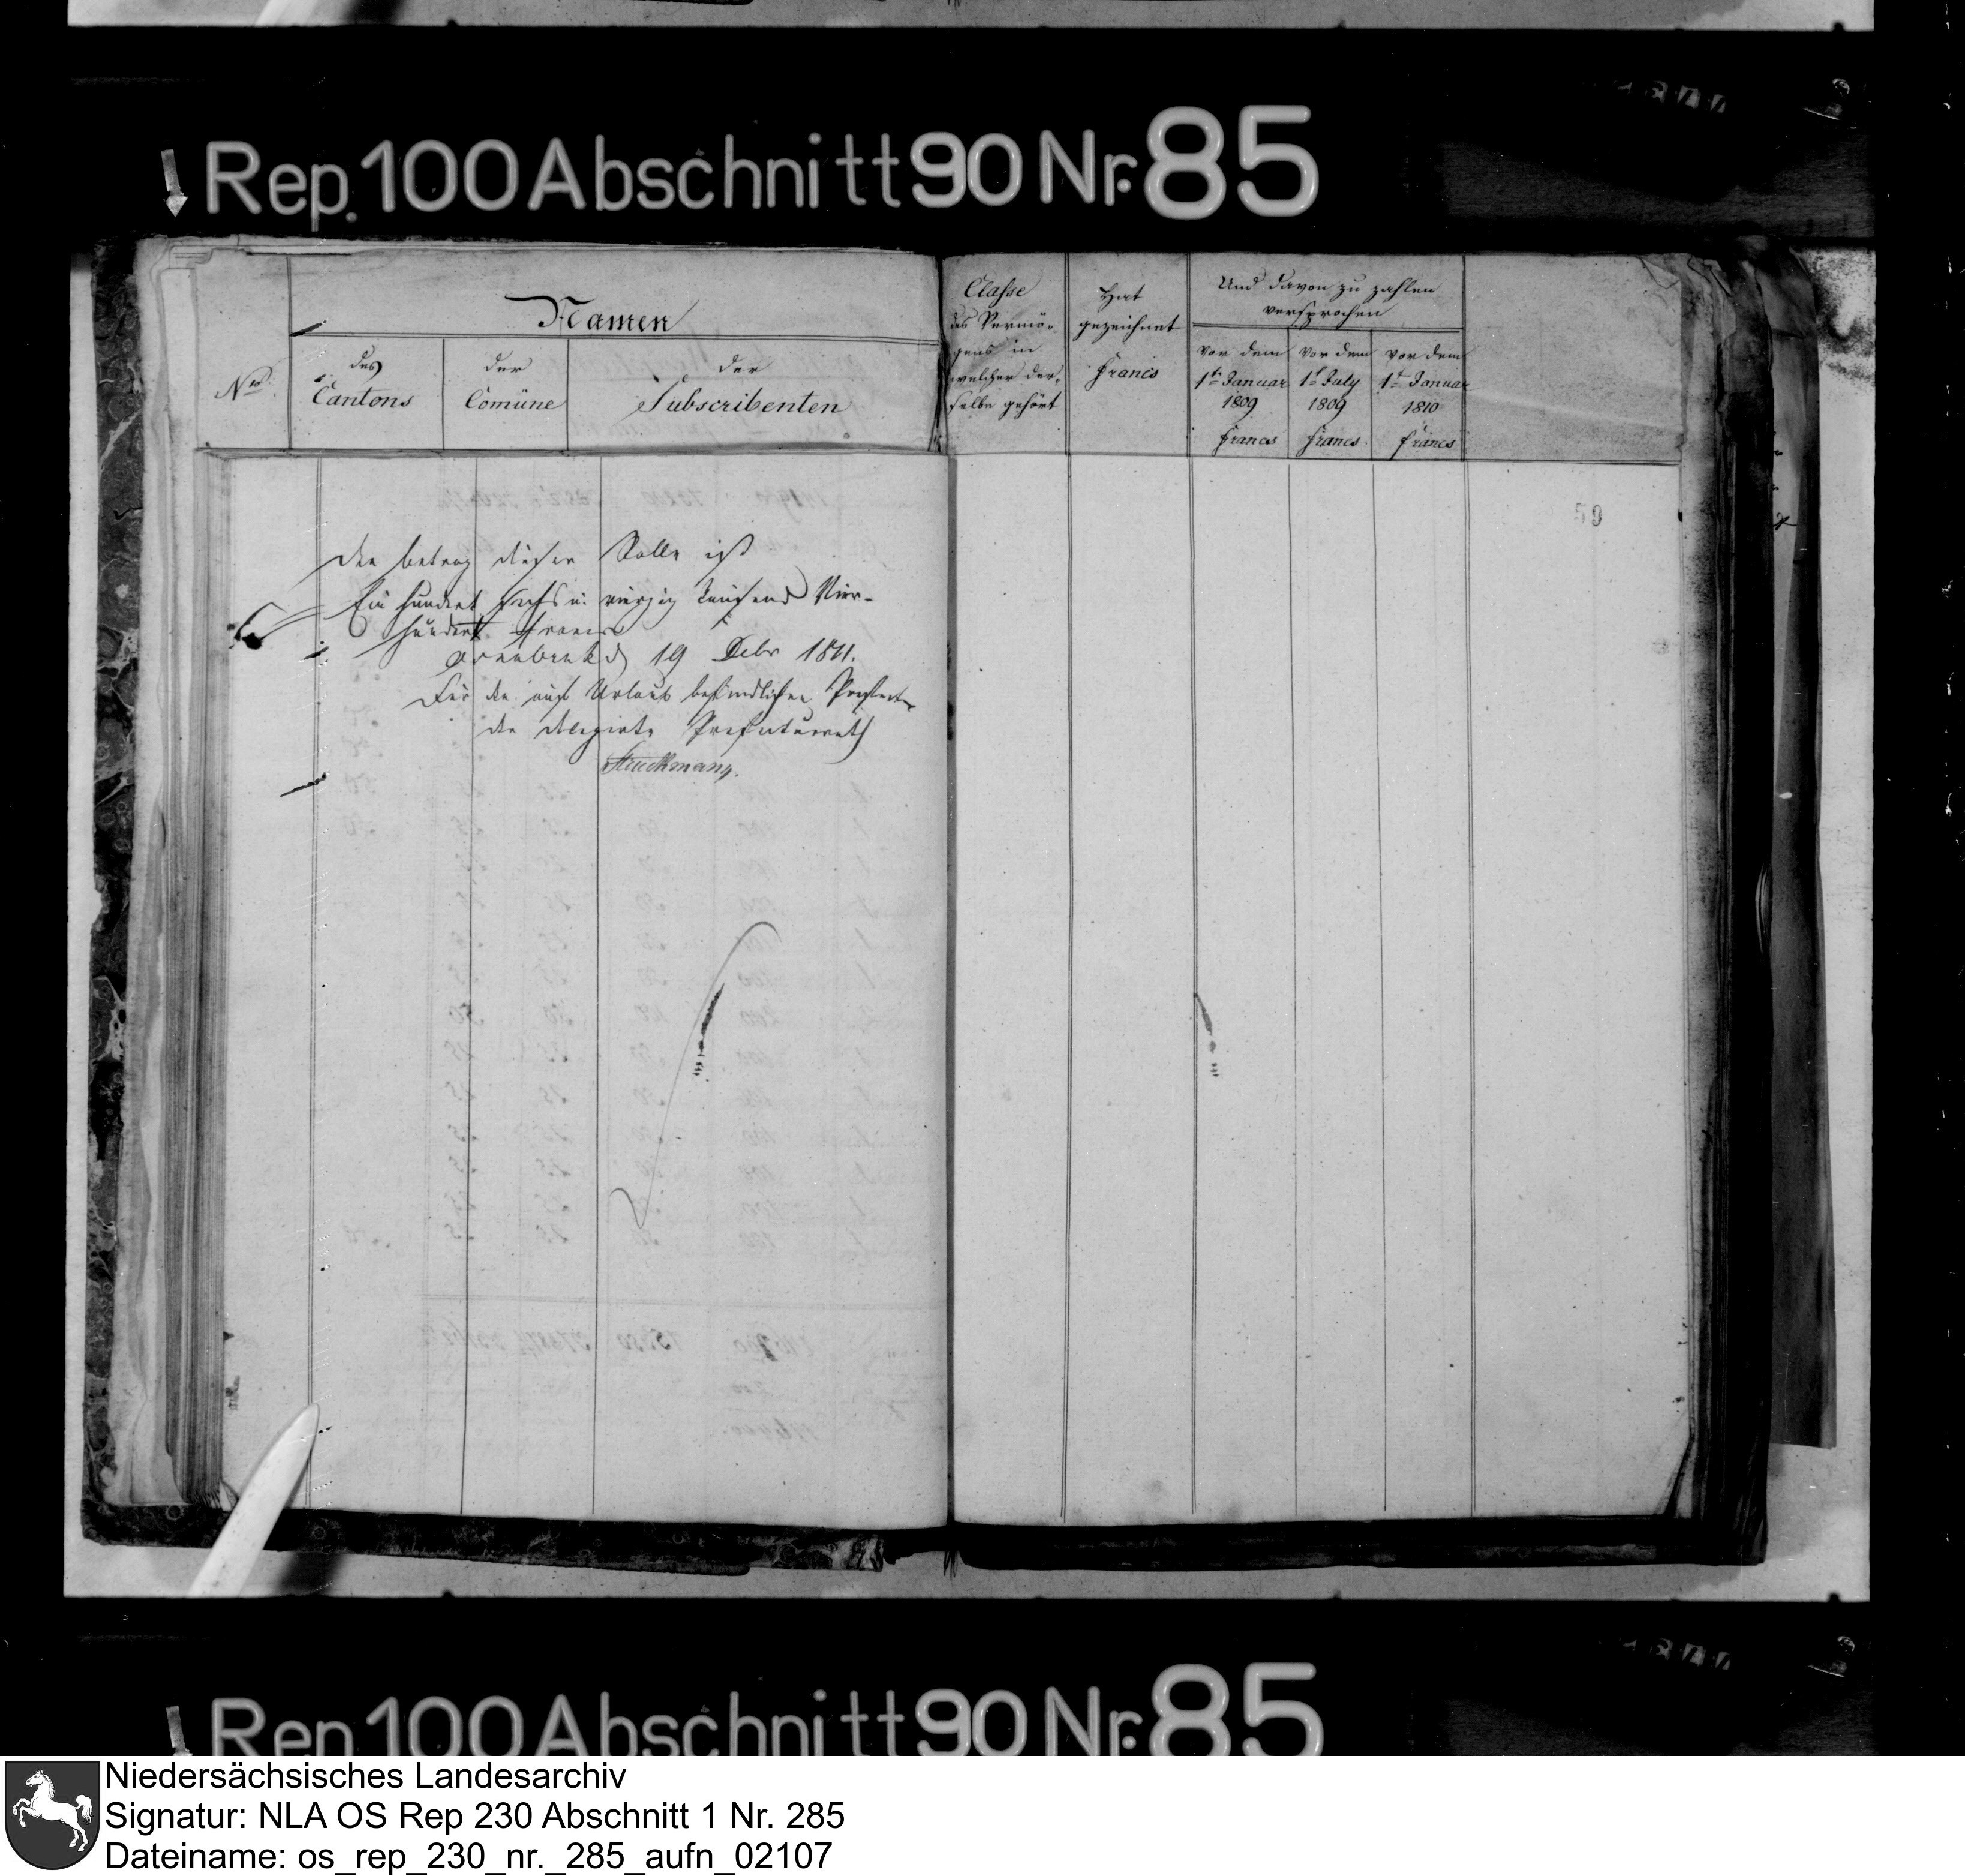 Rep. 100 Abschnitt 90 Nr. 85
Namen
Nro.
des
Cantons
der
Comüne
der
Subscribenten
Classe
des Vermö-
gens in
welcher der-
selbe gehört
Hat
gezeichnet
Francs
Und davon zu zahlen
versprochen
vor dem
1t Januar
1809
Francs
vor dem
1t July
1809
Francs
vor dem
1t Januar
1810
Francs
59
Der betrag dieser Rolle ist
Ein hundert sechs u. vierzig tausend Vier-
hundert Francs
Osnabrück d 19 Debr 1811.
Für den auf Urlaub befindlichen Prefect
der delegirte Prefecturrath
Struckmann.
Rep 100 Abschnitt 90 Nr. 85
Niedersächsisches Landesarchiv
Signatur: NLA OS Rep 230 Abschnitt 1 Nr. 285
Dateiname: os_rep_230_nr._285_aufn_02107